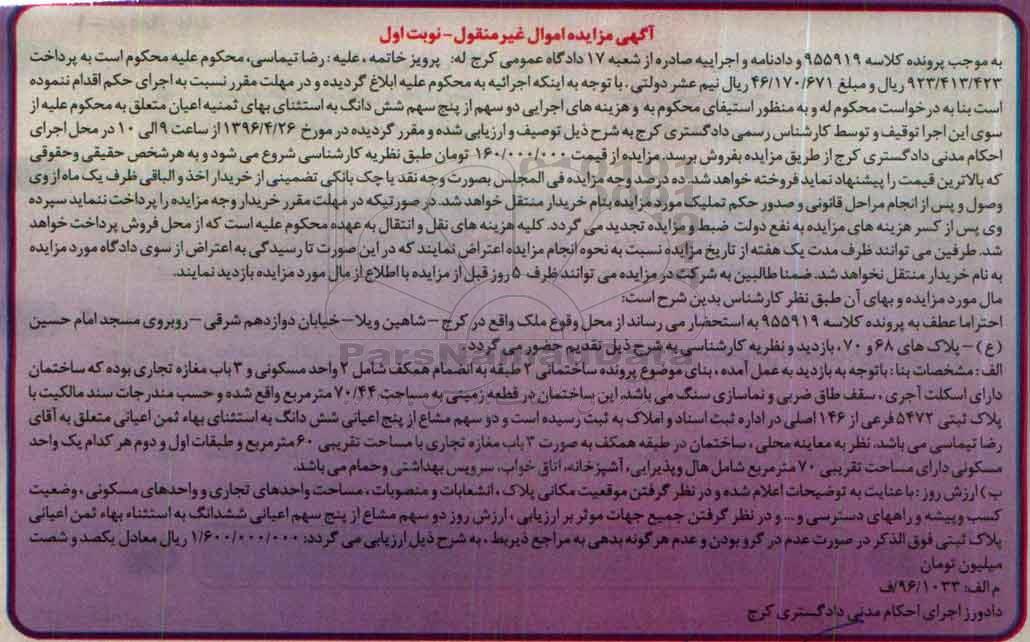 آگهی مزایده اموال غیر منقول - نوبت اول
به موجب پرونده کلاسه ۹۵۵۹۱۹ و دادنامه و اجراییه صادره از شعبه ۱۷ دادگاه عمومی کرج له: پرویز خاتمه ، علیه : رضا تیماسی، محکوم علیه محکوم است به پرداخت
۹۲۳/۴۱۳/۴۲۳ ریال و مبلغ ۴۶/۱۷۰/۶۷۱ ریال نیم عشر دولتی . با توجه به اینکه اجرائیه به محکوم علیه ابلاغ گردیده و در مهلت مقرر نسبت به اجرای حکم اقدام ننموده
است بنا به درخواست محکوم له و به منظور استیفای محکوم به و هزینه های اجرایی دو سهم از پنج سهم شش دانگ به استثنای بهای ثمنیه اعیان متعلق به محکوم علیه از
سوی این اجرا توقیف و توسط کارشناس رسمی دادگستری کرج به شرح ذیل توصیف و ارزیابی شده و مقرر گردیده در مورخ ۱۳۹۶/۴/۲۶ از ساعت ۹ الی ۱۰ در محل اجرای
احکام مدنی دادگستری کرج از طریق مزایده بفروش برسد. مزایده از قیمت ۱۶۰/۰۰۰/۰۰۰ تومان طبق نظریه کارشناسی شروع می شود و به هر شخص حقیقی وحقوقی
که بالاترین قیمت را پیشنهاد نماید فروخته خواهد شد. ده درصد وجه مزایده فی المجلس بصورت وجه نقد یا چک بانکی تضمینی از خریدار اخذ و الباقی ظرف یک ماه از وی
وصول و پس از انجام مراحل قانونی و صدور حکم تملیک مورد مزایده بنام خریدار منتقل خواهد شد. در صورتیکه در مهلت مقرر خریدار وجه مزایده را پرداخت ننماید سپرده
وی پس از کسر هزینه های مزایده به نفع دولت ضبط و مزایده تجدید می گردد. کلیه هزینه های نقل و انتقال به عهده محکوم علیه است که از محل فروش پرداخت خواهد
شد. طرفین می توانند ظرف مدت یک هفته از تاریخ مزایده نسبت به نحوه انجام مزایده اعتراض نمایند که در این صورت تا رسیدگی به اعتراض از سوی دادگاه مورد مزایده
به نام خریدار منتقل نخواهد شد. ضمنا طالبین به شرکت در مزایده می توانند ظرف ۵ روز قبل از مزایده با اطلاع از مال مورد مزایده بازدید نمایند.
مال مورد مزایده و بهای آن طبق نظر کارشناس بدین شرح است:
احتراما عطف به پرونده کلاسه ۹۵۵۹۱۹ به استحضار می رساند از محل وقوع ملک واقع در کرج – شاهین ویلا – خیابان دوازدهم شرقی – روبروی مسجد امام حسین
(ع) – پلاک های ۶۸ و ۷۰ ، بازدید و نظریه کارشناسی به شرح ذیل تقدیم حضور می گردد.
الف : مشخصات بنا : باتوجه به بازدید به عمل آمده ، بنای موضوع پرونده ساختمانی ۲ طبقه به انضمام همکف شامل ۲ واحد مسکونی و ۳ باب مغازه تجاری بوده که ساختمان
دارای اسکلت آجری ، سقف طاق ضربی و نماسازی سنگ می باشد. این ساختمان در قطعه زمینی به مساحت ۷۰/۴۴ متر مربع واقع شده و حسب مندرجات سند مالکیت با
پلاک ثبتی ۵۴۷۲ فرعی از ۱۴۶ اصلی در اداره ثبت اسناد و املاک به ثبت رسیده است و دو سهم مشاع از پنج اعیانی شش دانگ به استثنای بهاء ثمن اعیانی متعلق به آقای
رضا تیماسی می باشد. نظر به معاینه محلی ، ساختمان در طبقه همکف به صورت ۳ باب مغازه تجاری با مساحت تقریبی ۶۰ متر مربع و طبقات اول و دوم هر کدام یک واحد
مسکونی دارای مساحت تقریبی ۷۰ متر مربع شامل هال و پذیرایی ، آشپزخانه، اتاق خواب، سرویس بهداشتی وحمام می باشد.
ب ) ارزش روز : با عنایت به توضیحات اعلام شده و در نظر گرفتن موقعیت مکانی پلاک ، انشعابات و منصوبات ، مساحت واحدهای تجاری و واحدهای مسکونی ، وضعیت
کسب وپیشه و راههای دسترسی و ... و در نظر گرفتن جمیع جهات موثر بر ارزیابی ، ارزش روز دو سهم مشاع از پنج سهم اعیانی ششدانگ به استثناء بهاء ثمن اعیانی
پلاک ثبتی فوق الذکر در صورت عدم در گرو بودن و عدم هر گونه بدهی به مراجع ذیربط ، به شرح ذیل ارزیابی می گردد: ۱/۶۰۰/۰۰۰/۰۰۰ ریال معادل یکصد و شصت
میلیون تومان
م الف: ۹۶/۱۰۳۳/ف
دادورز اجرای احکام مدنی دادگستری کرج
ParsNamadData